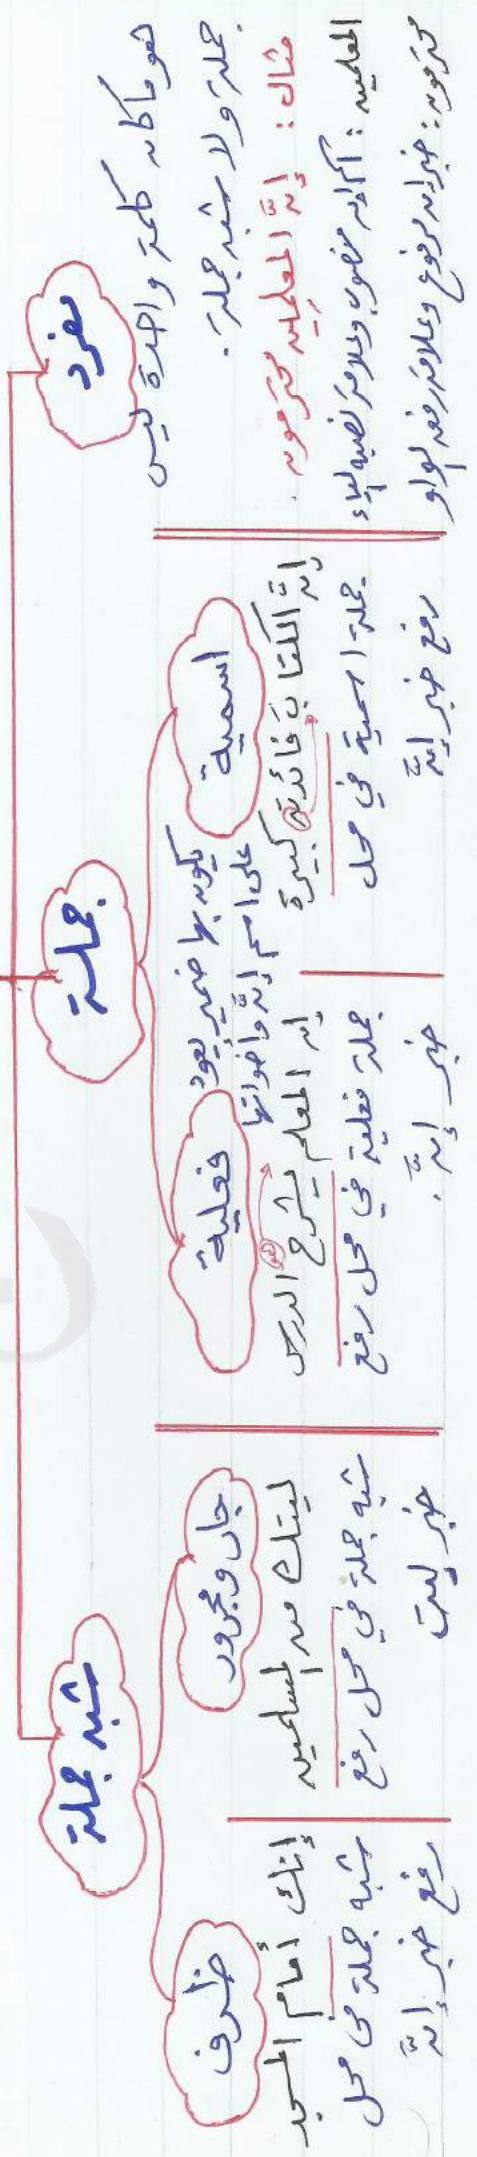 مفرد
هو ما كان كلمة واحدة ليس
جملة ولا شبه جملة.
مثال: إنَّ المعلمين محترمون.
المعلمين: اسم إن منصوب وعلامة نصبه الياء
محترمون: خبر إن مرفوع وعلامة رفعه الواو
جملة
يكون بها ضمير يعود
على اسم إنَّ وأخواتها
اسمية
إنَّ الكتابَ فائدته كبيرة
جملة اسمية في محل
رفع خبر إنَّ
فعلية
إن المعلم يشرح الدرس
هو
جملة فعلية في محل رفع
خبر إنَّ.
شبه جملة
جار ومجرور
ليتك من المسلمين
شبه جملة في محل رفع
خبر ليت
ظرف
إنك أمام المسجد
شبه جملة في محل
رفع خبر إنَّ